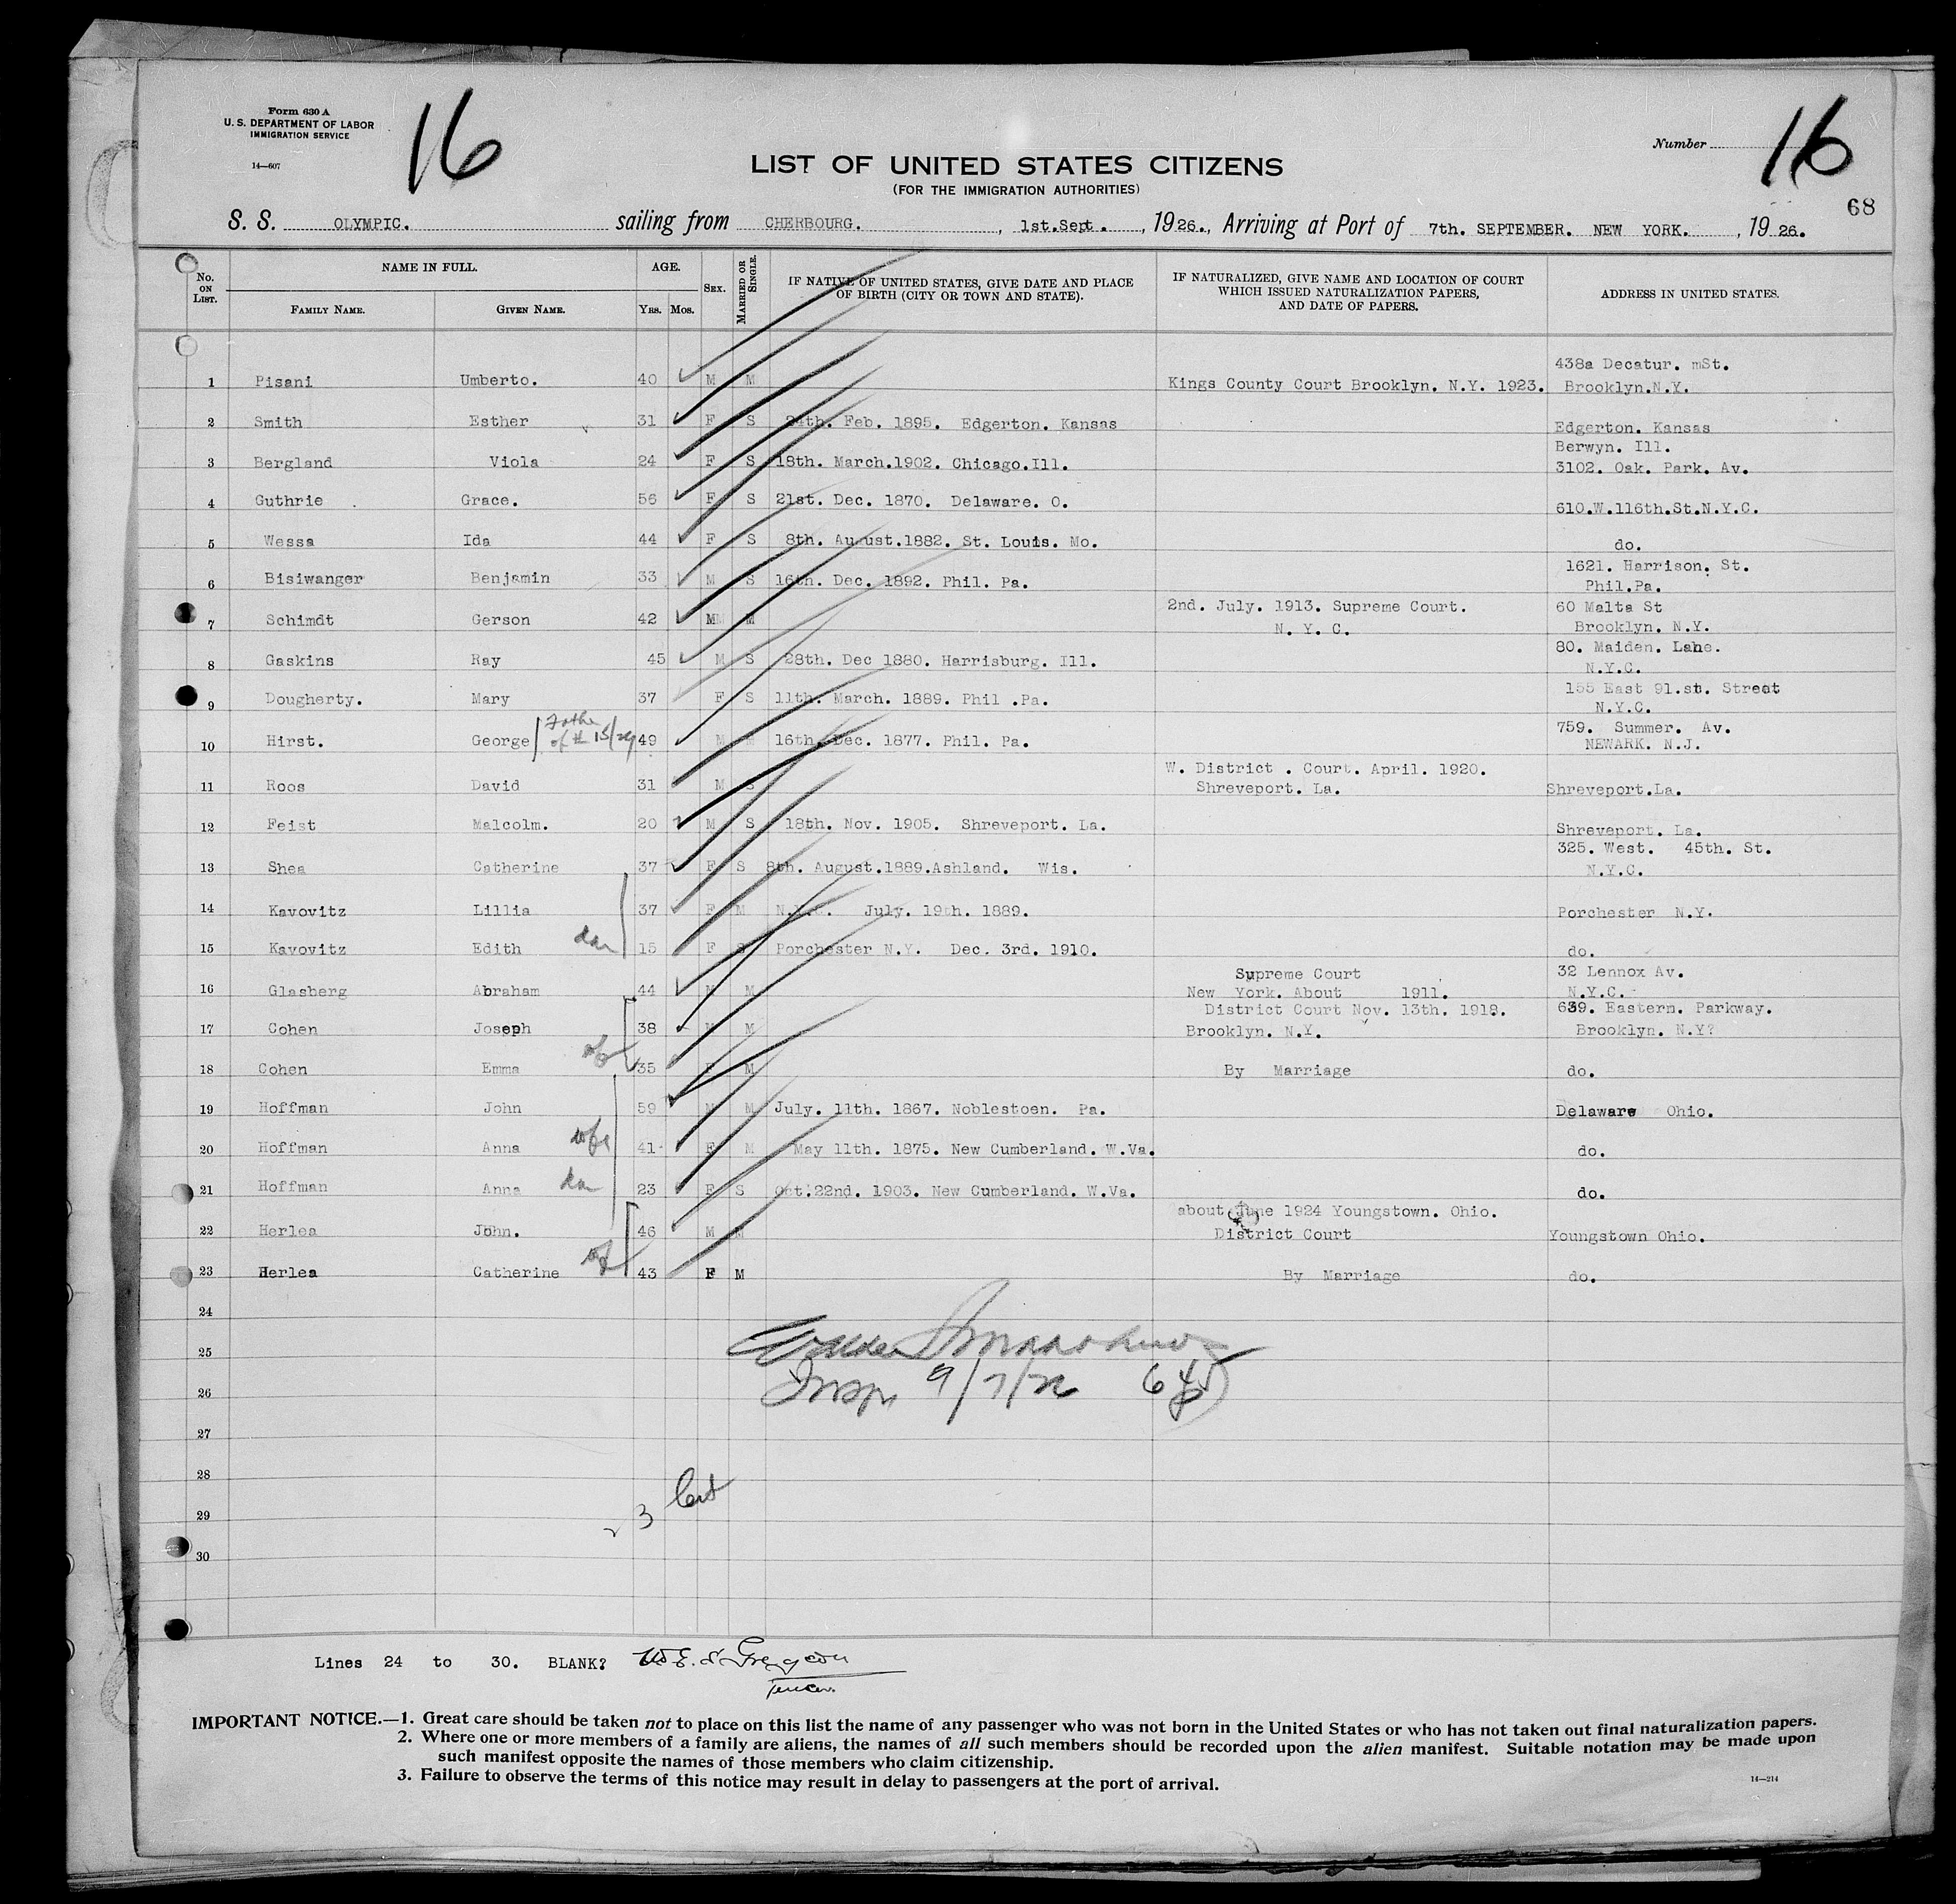 Form 630 A
U. S. DEPARTMENT OF LABOR
IMMIGRATION SERVICE
14—607
16
Number 16
68
LIST OF UNITED STATES CITIZENS
(FOR THE IMMIGRATION AUTHORITIES)
S. S. OLYMPIC. sailing from CHERBOURG. , 1st.Sept. , 1926., Arriving at Port of 7th. SEPTEMBER. NEW YORK. , 1926.
No. ON LIST. NAME IN FULL. FAMILY NAME. GIVEN NAME. AGE. YRS. MOS. SEX. MARRIED OR SINGLE. IF NATIVE OF UNITED STATES, GIVE DATE AND PLACE OF BIRTH (CITY OR TOWN AND STATE). IF NATURALIZED, GIVE NAME AND LOCATION OF COURT WHICH ISSUED NATURALIZATION PAPERS, AND DATE OF PAPERS. ADDRESS IN UNITED STATES.
438a Decatur. mSt.
1 Pisani Umberto. 40 M M Kings County Court Brooklyn. N.Y. 1923. Brooklyn.N.Y.
2 Smith Esther 31 F S 24th. Feb. 1895. Edgerton. Kansas Edgerton. Kansas
Berwyn. Ill.
3 Bergland Viola 24 F S 18th. March.1902. Chicago.Ill. 3102. Oak. Park. Av.
4 Guthrie Grace. 56 F S 21st. Dec. 1870. Delaware. O. 610.W.116th.St.N.Y.C.
5 Wessa Ida 44 F S 8th. August.1882. St. Louis. Mo. do.
1621. Harrison. St.
6 Bisiwanger Benjamin 33 M S 16th. Dec. 1892. Phil. Pa. Phil.Pa.
2nd. July. 1913. Supreme Court. 60 Malta St
7 Schimdt Gerson 42 M M N. Y. C. Brooklyn. N.Y.
80. Maiden. Lane.
8 Gaskins Ray 45 M S 28th. Dec 1880. Harrisburg. Ill. N.Y.C.
155 East 91.st. Street
9 Dougherty. Mary 37 F S 11th. March. 1889. Phil .Pa. N.Y.C.
Father of # 15/29
759. Summer. Av.
10 Hirst. George 49 M M 16th. Dec. 1877. Phil. Pa. NEWARK. N.J.
W. District . Court. April. 1920.
11 Roos David 31 M S Shreveport. La. Shreveport.La.
12 Feist Malcolm. 20 M S 18th. Nov. 1905. Shreveport. La. Shreveport. La.
325. West. 45th. St.
13 Shea Catherine 37 F S 8th. August.1889.Ashland. Wis. N.Y.C.
14 Kavovitz Lillia 37 F M N.Y.C. July. 19th. 1889. Porchester N.Y.
15 Kavovitz Edith dau 15 F S Porchester N.Y. Dec. 3rd. 1910. do.
Supreme Court 32 Lennox Av.
16 Glasberg Abraham 44 M M New York. About 1911. N.Y.C.
District Court Nov. 13th. 1918. 639. Eastern. Parkway.
17 Cohen Joseph 38 M M Brooklyn. N.Y. Brooklyn. N.Y?
18 Cohen Emma wf 35 F M By Marriage do.
19 Hoffman John 59 M M July. 11th. 1867. Noblestoen. Pa. Delaware Ohio.
20 Hoffman Anna wfe 41 F M May 11th. 1875. New Cumberland. W.Va. do.
21 Hoffman Anna dau 23 F S Oct.22nd. 1903. New Cumberland. W.Va. do.
about June 1924 Youngstown. Ohio.
22 Herlea John. 46 M M District Court Youngstown Ohio.
23 Herlea Catherine wf 43 F M By Marriage do.
24
25
Insp 9/7/26
26
27
28
29
3
30
Lines 24 to 30. BLANK?
IMPORTANT NOTICE.—1. Great care should be taken not to place on this list the name of any passenger who was not born in the United States or who has not taken out final naturalization papers.
2. Where one or more members of a family are aliens, the names of all such members should be recorded upon the alien manifest. Suitable notation may be made upon
such manifest opposite the names of those members who claim citizenship.
3. Failure to observe the terms of this notice may result in delay to passengers at the port of arrival.
14—214